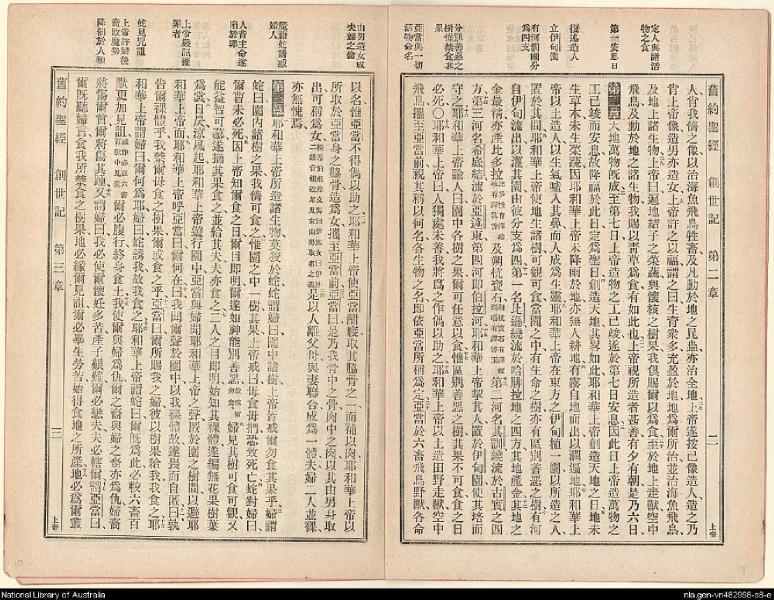 舊約聖經 創世記 第二章 二
定人與諸活物之食
第七安息日
復述造人
立伊甸園
有河劃園分爲四支
分別善惡之樹惟禁食其果
亞當與一切活物命名
人肖我儕之像以治海魚飛鳥牲畜及凡動於地之昆蟲亦治全地上帝遂按己像造人造之乃
肖上帝像造男亦造女上帝許之以福謂之曰生育衆多充盈於地地爲爾所治並治海魚飛鳥
及地上諸生物上帝曰遍地結子之菜蔬與懷核之樹果我俱賜爾以爲食至於地上走獸空中
飛鳥及動於地之諸生物我賜以青草爲食有如此也上帝視所造者甚善有夕有朝是乃六日
第二章 天地萬物旣成至第七日上帝造物之工已竣遂於第七日安息因此日上帝造萬物之
工已竣而安息故降福於此日定爲聖日創造天地其畧如此耶和華上帝創造天地之日地未
生草木未生菜蔬因耶和華上帝未降雨於地亦無人耕地有霧自地而出以潤遍地耶和華上
帝以土造人以生氣噓入其鼻而人成爲生靈耶和華上帝在東方之伊甸植一園以所造之人
置於其間耶和華上帝使地生諸樹可觀可食當園之中有生命之樹亦有區別善惡之樹有河
自伊甸流出以灌其園由彼分支爲四第一名比遜繞流於哈腓拉地之四方其地產金其地之
金最精亦產比多拉 及朔杭寶石 第二河名其訓繞流於古實之四
方第三河名希底結流於亞述東第四河卽伯拉河耶和華上帝挈其人置於伊甸園使其培而
守之耶和華上帝諭人曰園中各樹之果爾可任意以食惟區別善惡之樹其果不可食食之日
必死○耶和華上帝曰人獨處未善我將爲之作偶以助之耶和華上帝以土造田野走獸空中
飛鳥攜至亞當前視其稱以何名各生物之名卽依亞當所稱爲定亞當於六畜飛鳥野獸各命
上帝
由男造女成夫婦之倫
蛇誑始誘惑婦人
人背主命遂陷於罪
上帝嚴訊獲罪者
蛇見咒詛
以名惟亞當不得偶以助之耶和華上帝使亞當酣寢取其脇骨之一而補以肉耶和華上帝以
所取於亞當身之脇骨造爲女攜至亞當前亞當曰是乃我骨中之骨肉中之肉以其由男身取
出可稱爲女 是以人離父母與妻聯合成爲一體夫婦二人並裸
亦無愧焉
第三章 耶和華上帝所造諸生物莫狡於蛇蛇謂婦曰園中諸樹上帝豈戒爾勿食其果乎婦謂
蛇曰園內諸樹之果我儕可食之惟園之中一樹其果上帝戒曰毋食毋捫恐致死亡蛇對婦曰
爾曹未必死因上帝知爾食之日爾目卽明爾遂如神能別善惡 婦見其樹可食可觀又
能益智可慕遂摘其果食之並給其夫夫亦食之二人之目卽明始知其裸體遂編無花果樹葉
爲裳日昃涼風起耶和華上帝遊行園中亞當與婦聞耶和華上帝之聲匿於園之樹間以避耶
和華上帝面耶和華上帝呼亞當曰爾何在曰我聞爾聲於園中以我裸體故遂畏而自匿曰孰
告爾裸體乎我禁爾毋食之樹果爾或食之乎亞當曰爾所賜我之婦彼以樹果給我我食之耶
和華上帝謂婦曰爾何爲耶婦曰蛇誘我故我食之耶和華上帝謂蛇曰爾旣爲此必較六畜百
獸更加見詛 爾必腹行終身食土我使爾與婦爲仇爾之裔與婦之裔亦爲仇婦裔
將傷爾首爾將傷其踵又謂婦曰我必使爾懷妊多苦產子艱難爾必戀夫夫必轄爾謂亞當曰
爾旣聽婦言食我所禁食之果地必緣爾見詛爾必畢生勞苦始得食地之所產地必爲爾叢
舊約聖經 創世記 第三章 三
上帝
National Library of Australia
nla.gen-vn482998-s8-e